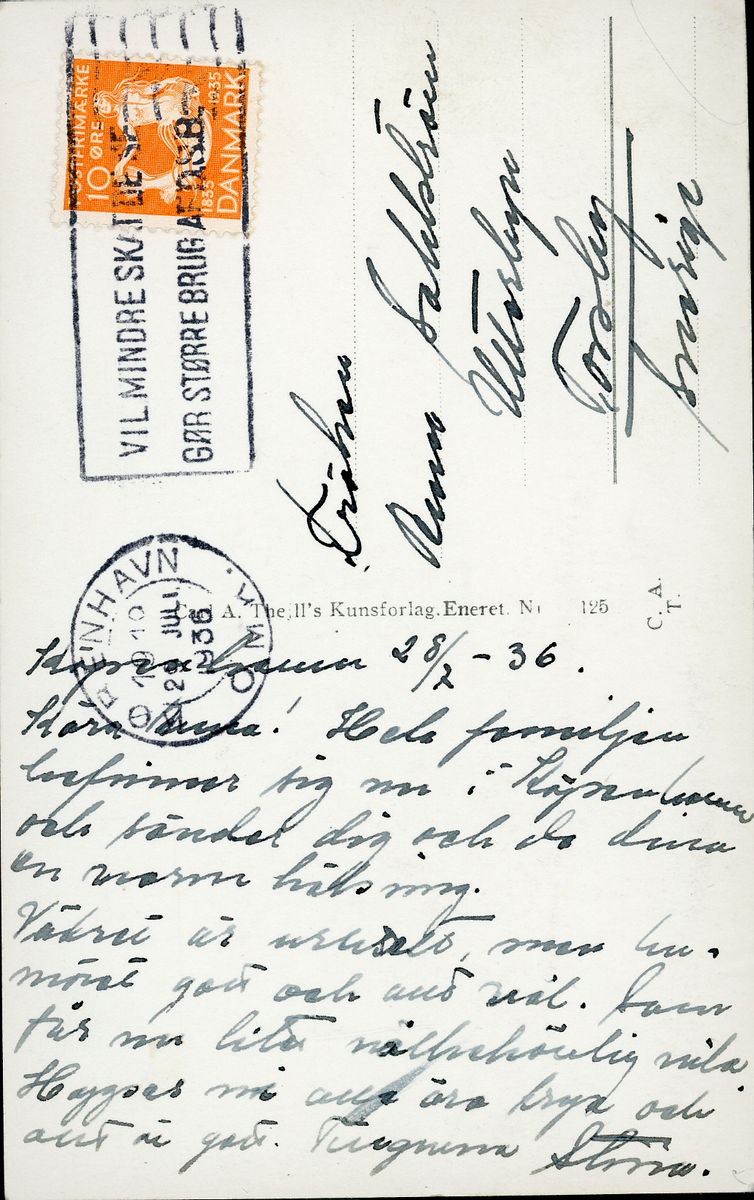 POSTFRIMÆRKE
10 ØRE
1835 1935
DANMARK
VIL MINDRE SKAT DE SE
GØR STØRRE BRUG AF DSB.
KØBENHAVN OMV.
19 10
29 JULI
1936
Fröken
Anna Dahlström
Utterbyn
Torsby
Sverige
Carl A. Thejll's Kunsforlag. Eneret. Nr 125
C. A. T.
Köpenhamn 28/7 - 36.
Kära Anna! Hela familjen
befinner sig nu i Köpenhamn
och sänder dig och de dina
en varm hälsning.
Vädret är uruselt, men hu-
möret gott och allt väl. Sam
får nu lite välbehövlig vila
Hoppas ni alla äro krya och
allt är gott. Tungnerna Stina.